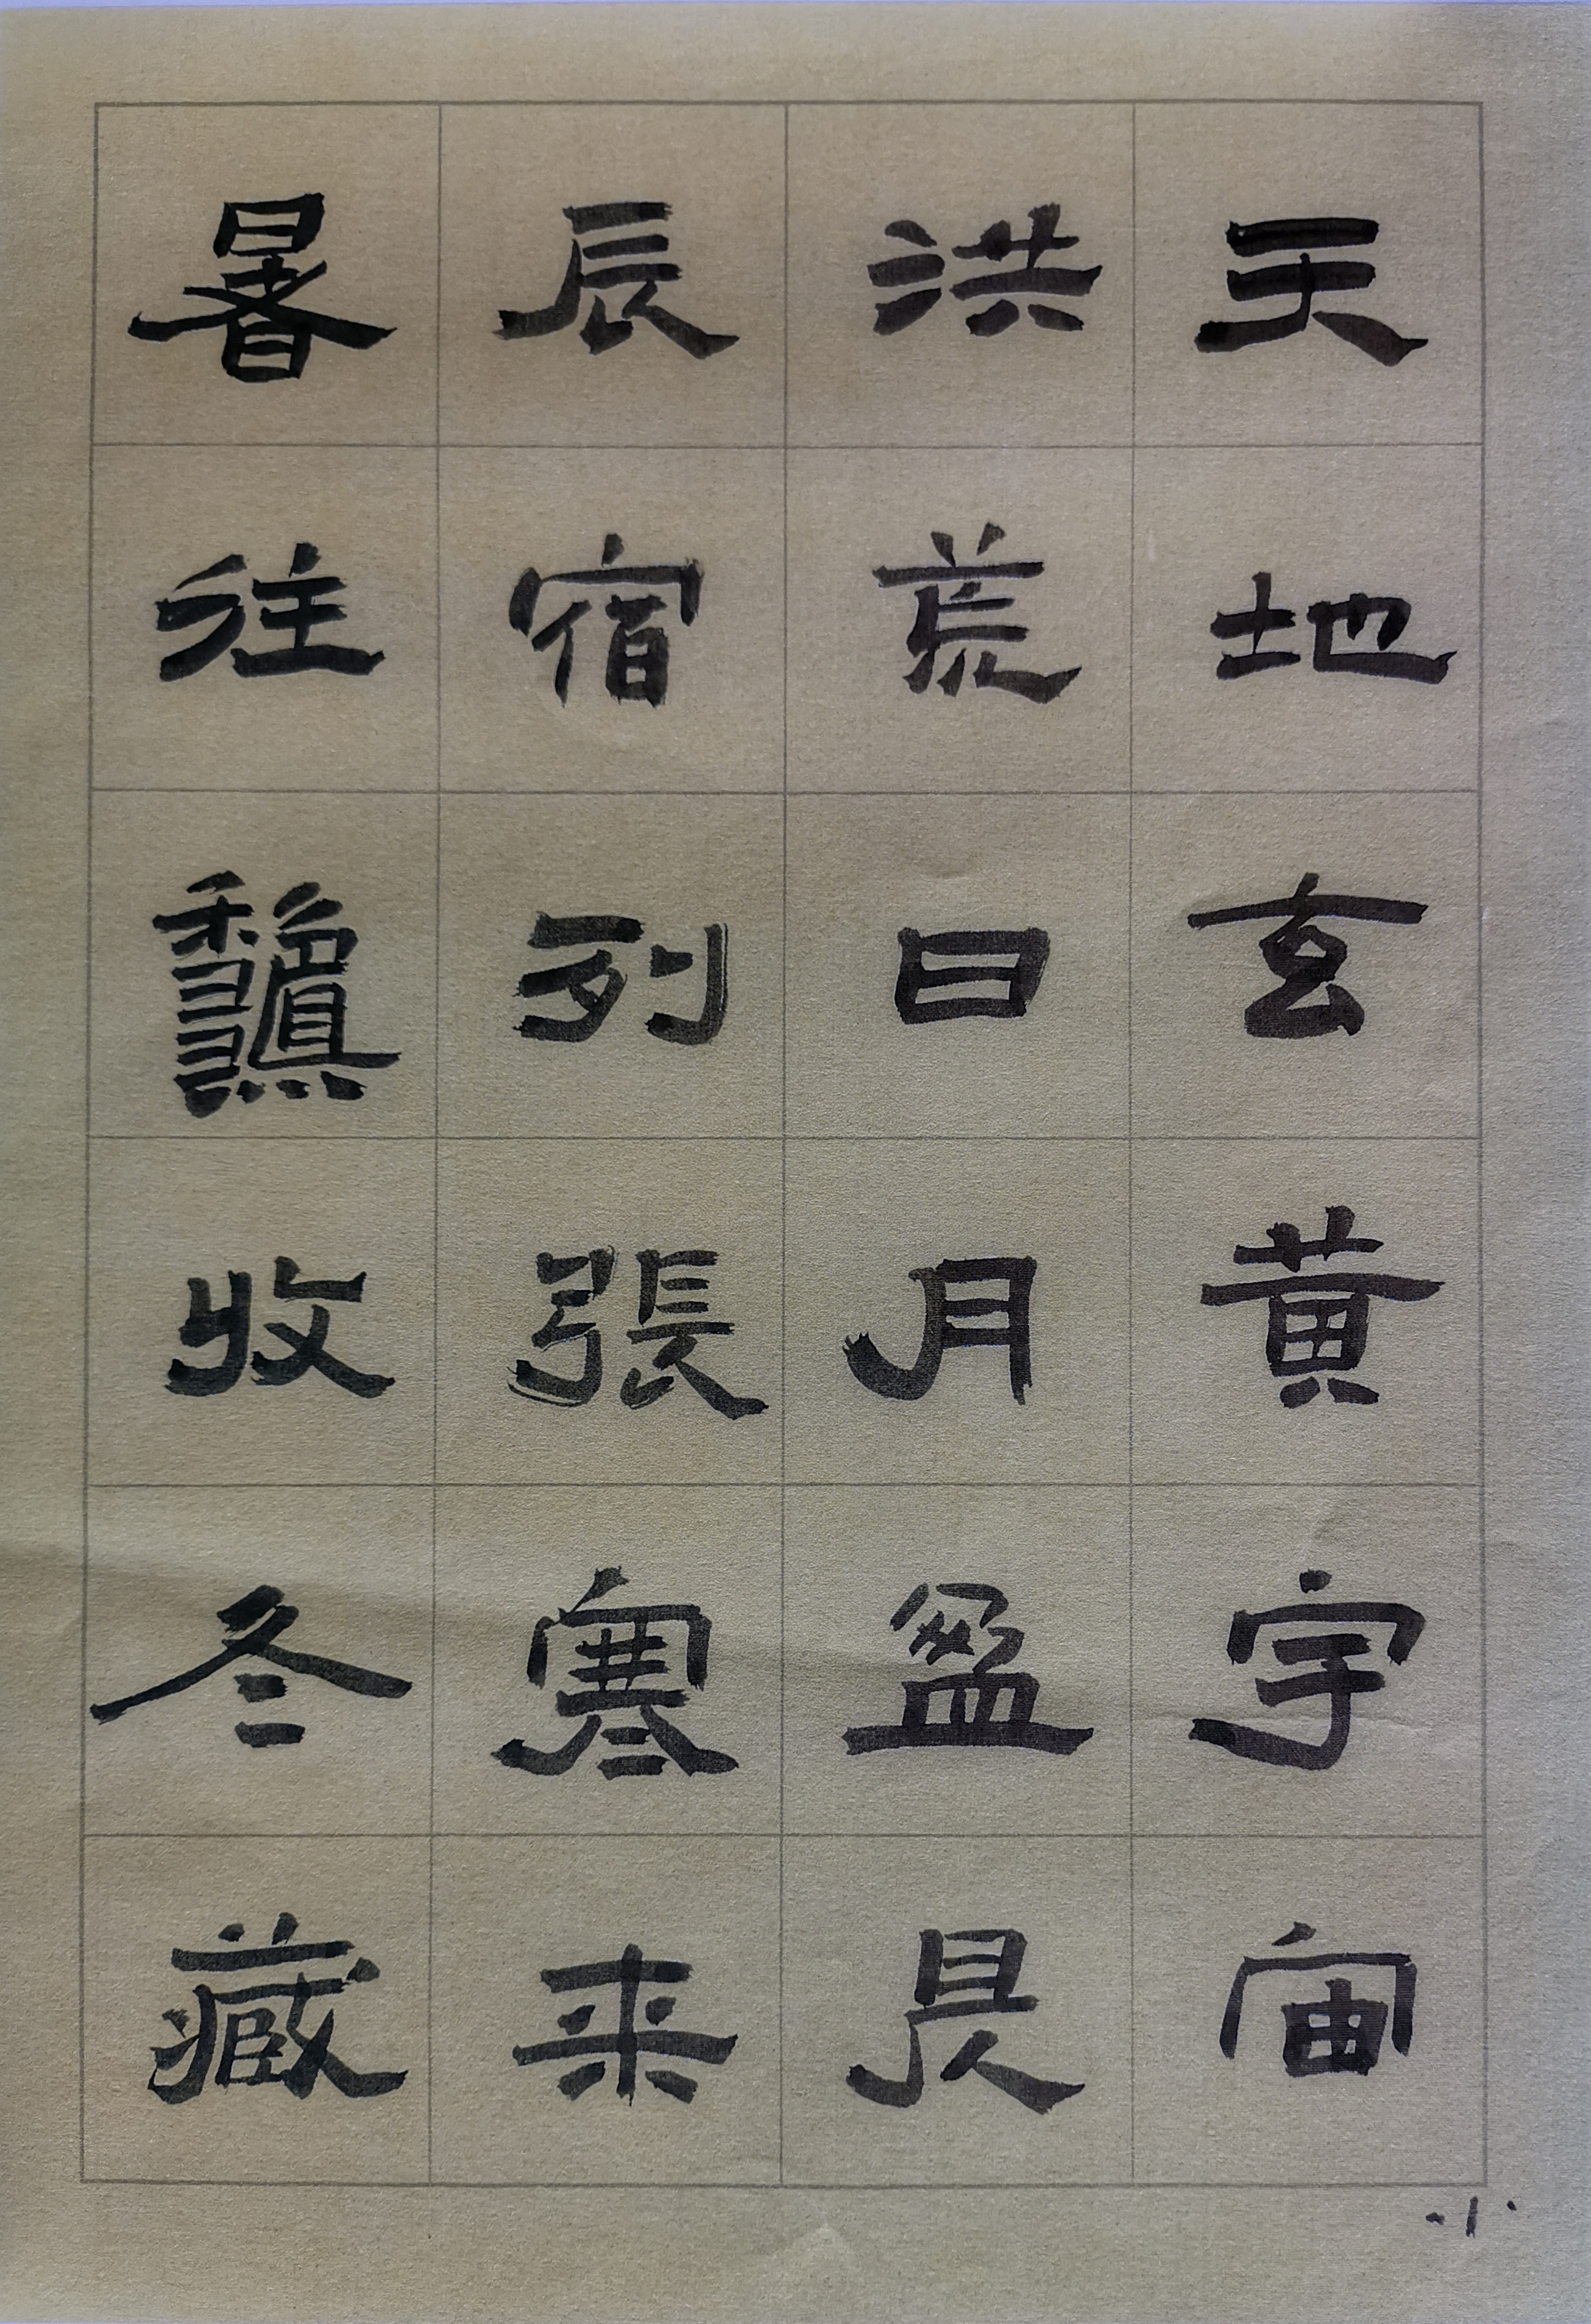 天地玄黄宇宙
洪荒日月盈昃
辰宿列張寒来
暑往龝收冬藏
·1·